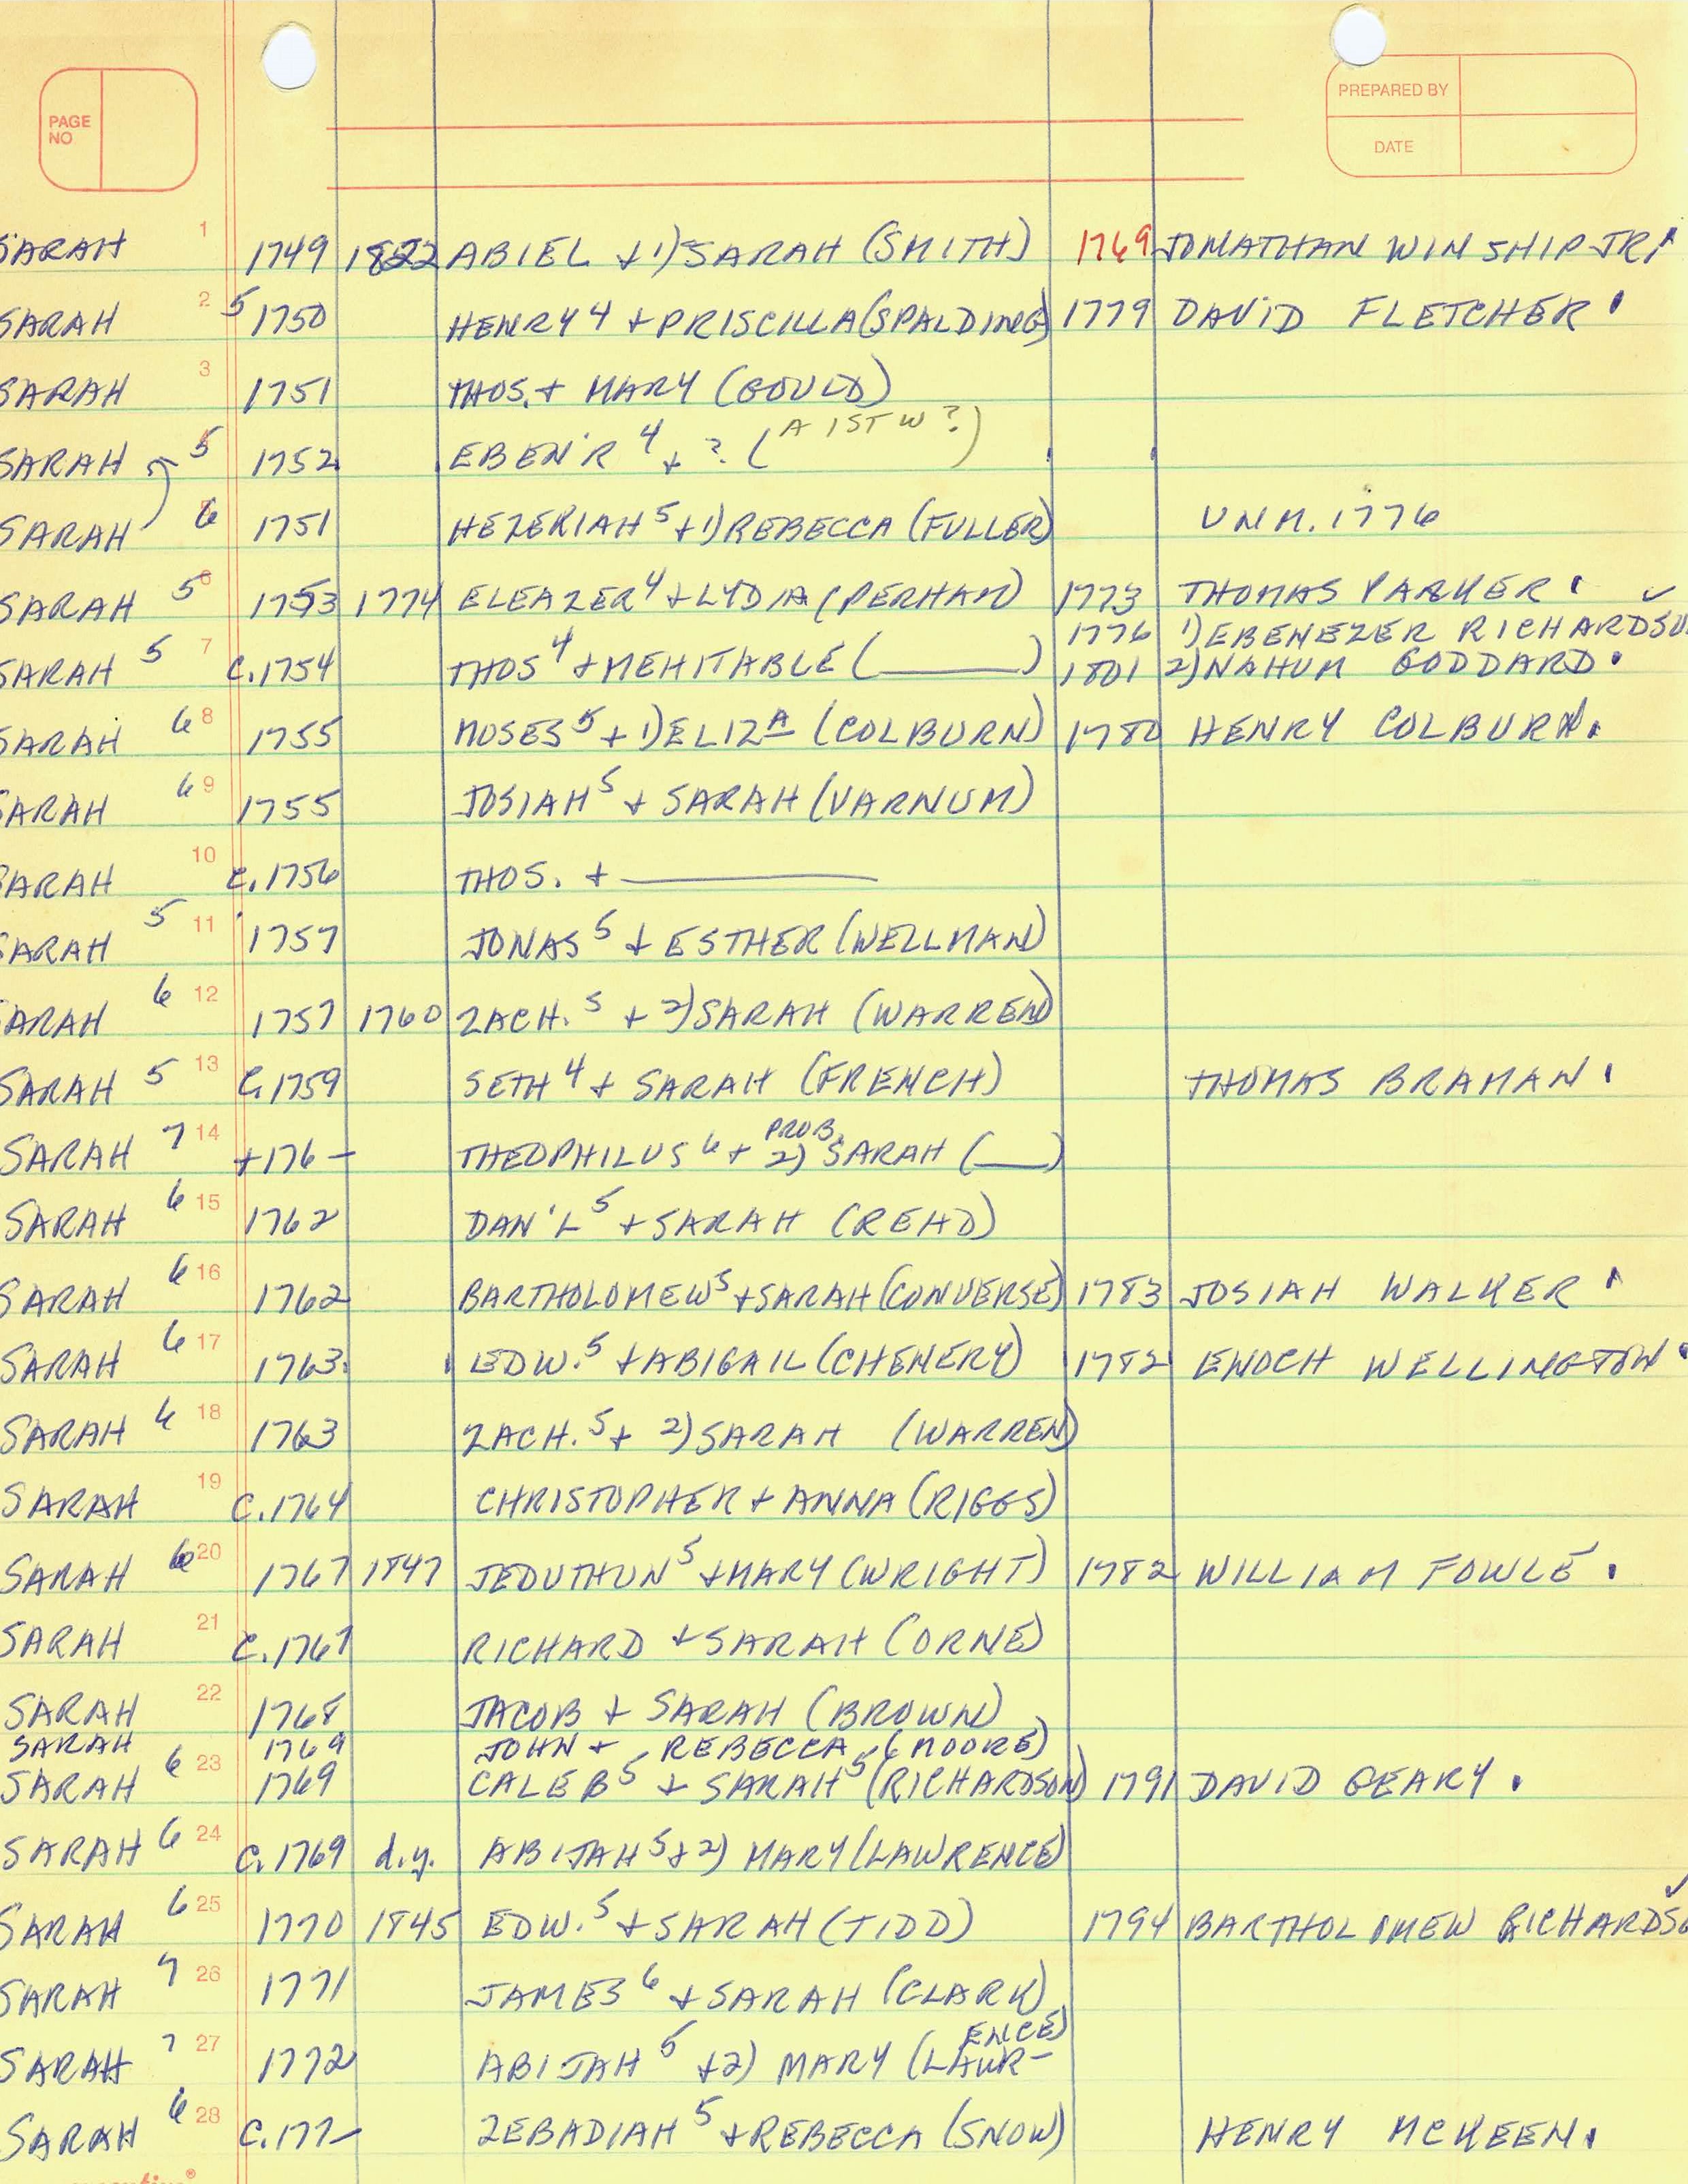 PAGE NO
PREPARED BY
DATE
SARAH 1 1749 1822 ABIEL + 1) SARAH (SMITH) 1769 JONATHAN WINSHIP JR.
SARAH 2 5 1750 HENRY 4 + PRISCILLA (SPALDING) 1779 DAVID FLETCHER.
SARAH 3 1751 THOS. + MARY (GOULD)
SARAH 5 1752 EBEN'R 4 + ? (A 1ST W?)
SARAH 6 1751 HEZEKIAH 5 + 1) REBECCA (FULLER) UNM. 1776
SARAH 5 6 1753 1774 ELEAZER 4 + LYDIA (PERHAM) 1773 THOMAS PARKER. ✓
1776 1) EBENEZER RICHARDSO
SARAH 5 7 C. 1754 THOS 4 + MEHITABLE (____) 1801 2) NAHUM GODDARD.
SARAH 6 8 1755 MOSES 5 + 1) ELIZA (COLBURN) 1780 HENRY COLBURN.
SARAH 6 9 1755 JOSIAH 5 + SARAH (VARNUM)
SARAH 10 C. 1756 THOS. + ____
SARAH 5 11 1757 JONAS 5 + ESTHER (WELLMAN)
SARAH 6 12 1757 1760 ZACH. 5 + 2) SARAH (WARREN)
SARAH 5 13 C. 1759 SETH 4 + SARAH (FRENCH) THOMAS BRAMAN.
SARAH 7 14 +176- THEOPHILUS 6 + PROB. 2) SARAH (__)
SARAH 6 15 1762 DAN'L 5 + SARAH (READ)
SARAH 6 16 1762 BARTHOLOMEW 5 + SARAH (CONVERSE) 1783 JOSIAH WALKER.
SARAH 6 17 1763 EDW. 5 + ABIGAIL (CHENERY) 1782 ENOCH WELLINGTON.
SARAH 6 18 1763 ZACH. 5 + 2) SARAH (WARREN)
SARAH 19 C. 1764 CHRISTOPHER + ANNA (RIGGS)
SARAH 6 20 1767 1847 JEDUTHUN 5 + MARY (WRIGHT) 1782 WILLIAM FOWLE.
SARAH 21 C. 1767 RICHARD + SARAH (ORNE)
SARAH 22 1768 JACOB + SARAH (BROWN)
SARAH 1769 JOHN + REBECCA (MOORE)
SARAH 6 23 1769 CALEB 5 + SARAH 5 (RICHARDSON) 1791 DAVID GEARY.
SARAH 6 24 C. 1769 d.y. ABIJAH 5 + 2) MARY (LAWRENCE)
SARAH 6 25 1770 1845 EDW. 5 + SARAH (TIDD) 1794 BARTHOLOMEW RICHARDSO ✓
SARAH 7 26 1771 JAMES 6 + SARAH (CLARK)
SARAH 7 27 1772 ABIJAH 5 + 2) MARY (LAWR-ENCE)
SARAH 6 28 C. 177- ZEBADIAH 5 + REBECCA (SNOW) HENRY MCKEEN.